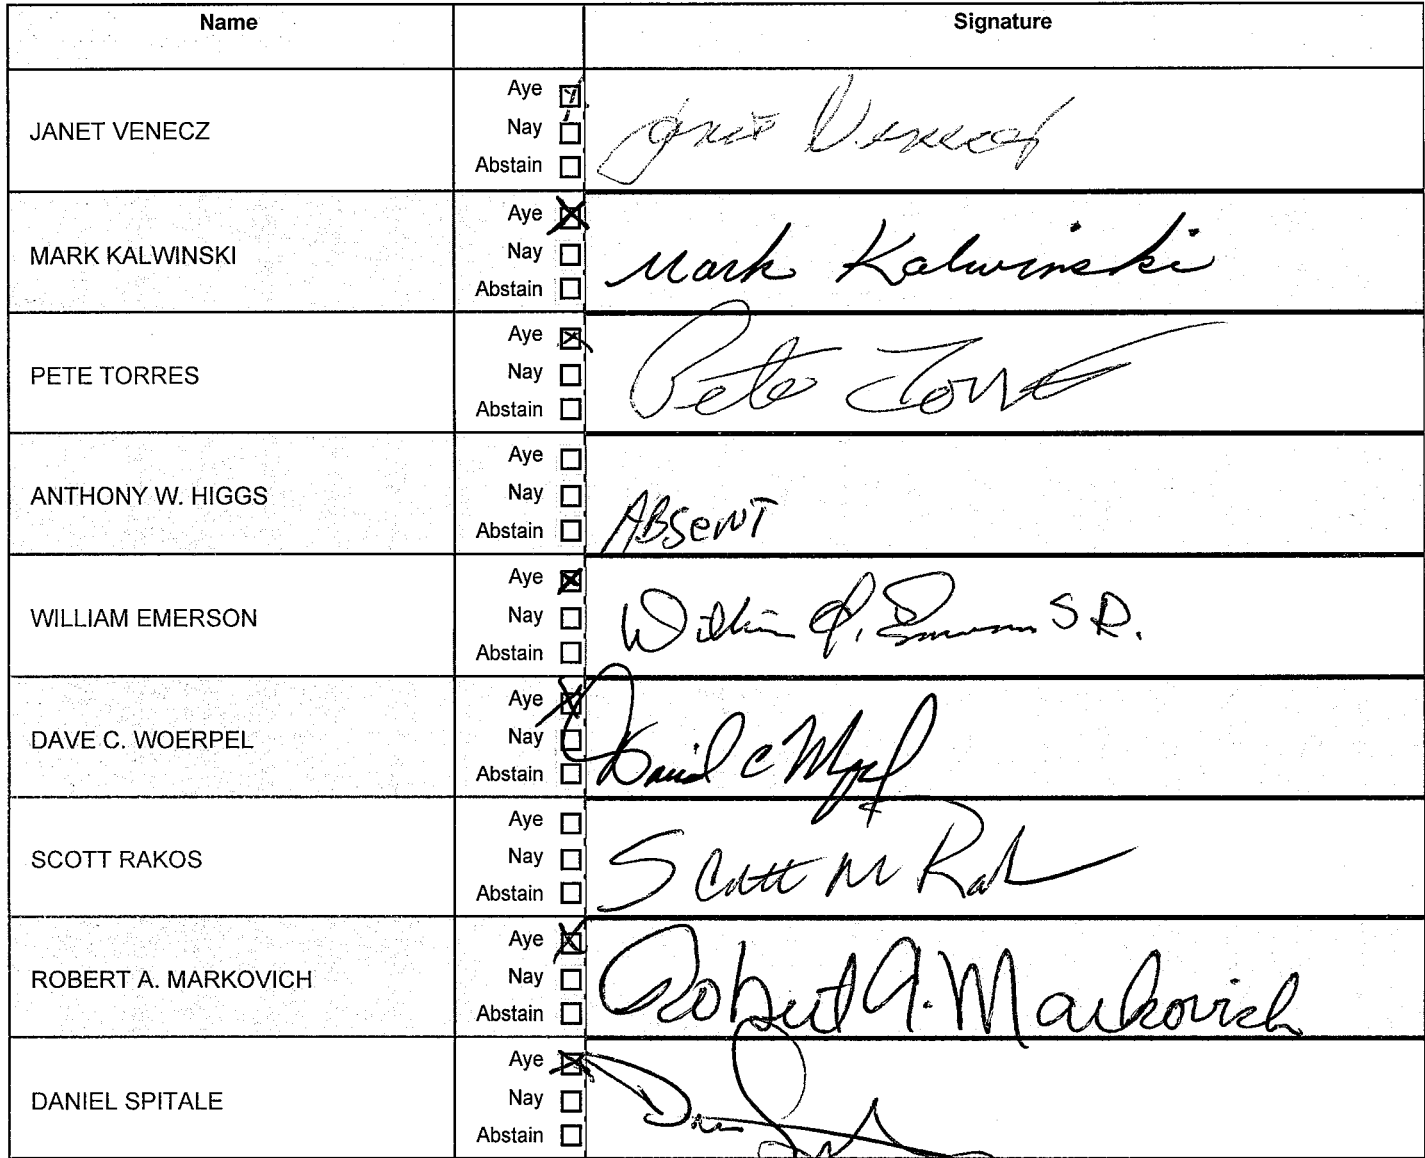 Name Signature
JANET VENECZ
Aye
Nay
Abstain
Janet Venecz
MARK KALWINSKI
Aye
Nay
Abstain
Mark Kalwinski
PETE TORRES
Aye
Nay
Abstain
Pete Torres
ANTHONY W. HIGGS
Aye
Nay
Abstain
ABSENT
WILLIAM EMERSON
Aye
Nay
Abstain
William J. Emerson SR.
DAVE C. WOERPEL
Aye
Nay
Abstain
David C
SCOTT RAKOS
Aye
Nay
Abstain
Scott M Rak
ROBERT A. MARKOVICH
Aye
Nay
Abstain
Robert A. Markovich
DANIEL SPITALE
Aye
Nay
Abstain